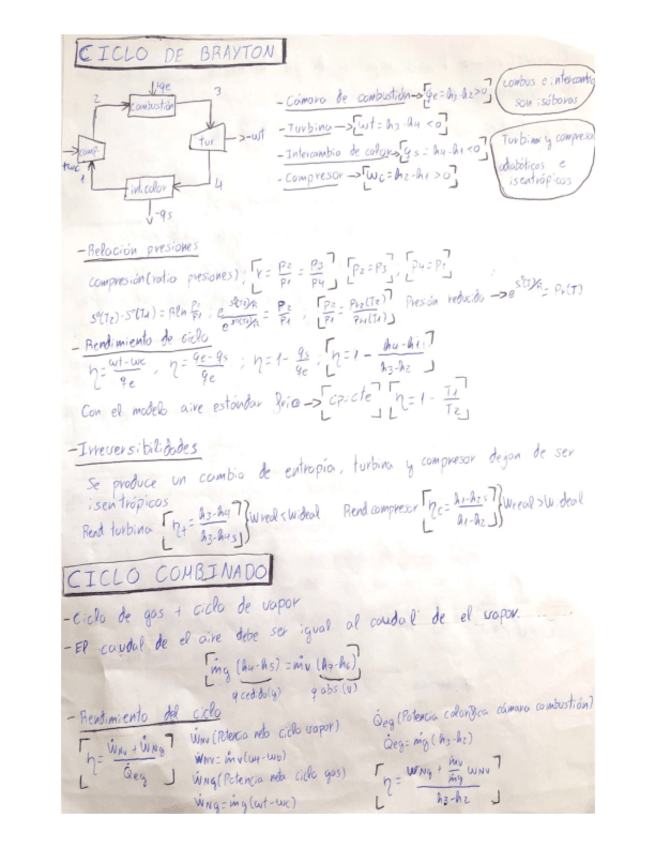 CICLO DE BRAYTON
qe
2
combustión
3
comp
tur
-wt
+wc
1
int.calor
4
-qs
- Cámara de combustión → [qe = h3-h2 > 0]
- Turbina → [wt = h3-h4 < 0]
- Intercambio de calor → [qs = h4-h1 < 0]
- Compresor → [wc = h2-h1 > 0]
combus e intercamb
son isóbaros
Turbina y compreso
adiabáticos e
isentrópicos
- Relación presiones
compresión (ratio presiones); [r = P2/P1 = P3/P4] [P2 = P3], [P4 = P1]
Sº(T2)-Sº(T1) = R ln P2/P1; e^(Sº(T2)/R)/e^(Sº(T1)/R) = P2/P1; [P2/P1 = Pr2(T2)/Pr1(T1)] Presión reducida → e^(Sº(T)/R) = Pr(T)
- Rendimiento de ciclo
η = wt-wc/qe, η = qe-qs/qe; η = 1 - qs/qe; [η = 1 - h4-h1/h3-h2]
Con el modelo aire estándar frío → [cp=cte] [η = 1 - T1/T2]
- Irreversibilidades
Se produce un cambio de entropía, turbina y compresor dejan de ser
isentrópicos
Rend turbina [ηt = h3-h4/h3-h4s] } Wreal < Wideal Rend compresor [ηc = h1-h2s/h1-h2] } Wreal > Wideal
CICLO COMBINADO
- Ciclo de gas + ciclo de vapor
- El caudal de el aire debe ser igual al caudal de el vapor
[ṁg (h4-h5) = ṁv (h7-h6)]
q cedido(g) q abs (v)
- Rendimiento del ciclo
[η = ẆNv + ẆNg/Q̇eg]
ẆNv (Potencia neta ciclo vapor)
ẆNv = ṁv (wt-wb)
ẆNg (Potencia neta ciclo gas)
ẆNg = ṁg (wt-wc)
Q̇eg (Potencia calorífica cámara combustión)
Q̇eg = ṁg (h3-h2)
[η = wNg + ṁv/ṁg wNv/h3-h2]